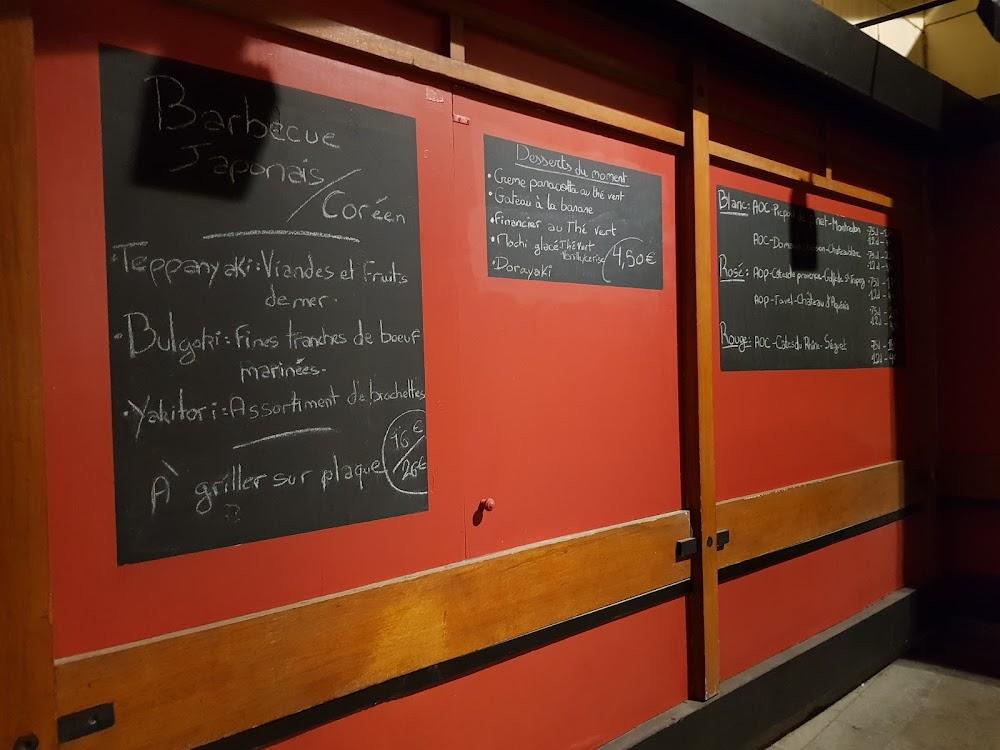 Barbecue
Japonais /
Coréen
• Teppanyaki: Viandes et Fruits
de mer.
• Bulgoki: Fines tranches de boeuf
marinées.
• Yakitori: Assortiment de brochettes
À griller sur plaque 16€ / 26€
Desserts du moment
• Creme panacotta au thé vert
• Gateau à la banane
• Financier au Thé vert
• Mochi glacé Thé vert
Vanille/cerise
4,50€
• Dorayaki
Blanc: AOC-Picpoul de Pinet-Montredon 75cl -
12cl -
AOC-Domaine 75cl -
12cl -
Rosé: AOP-Cotes de provence- 75cl -
12cl -
AOP-Tavel-Château d'Aquéria 75cl -
12cl -
Rouge: AOC-Cotes du Rhône-Séguret 75cl -
12cl -